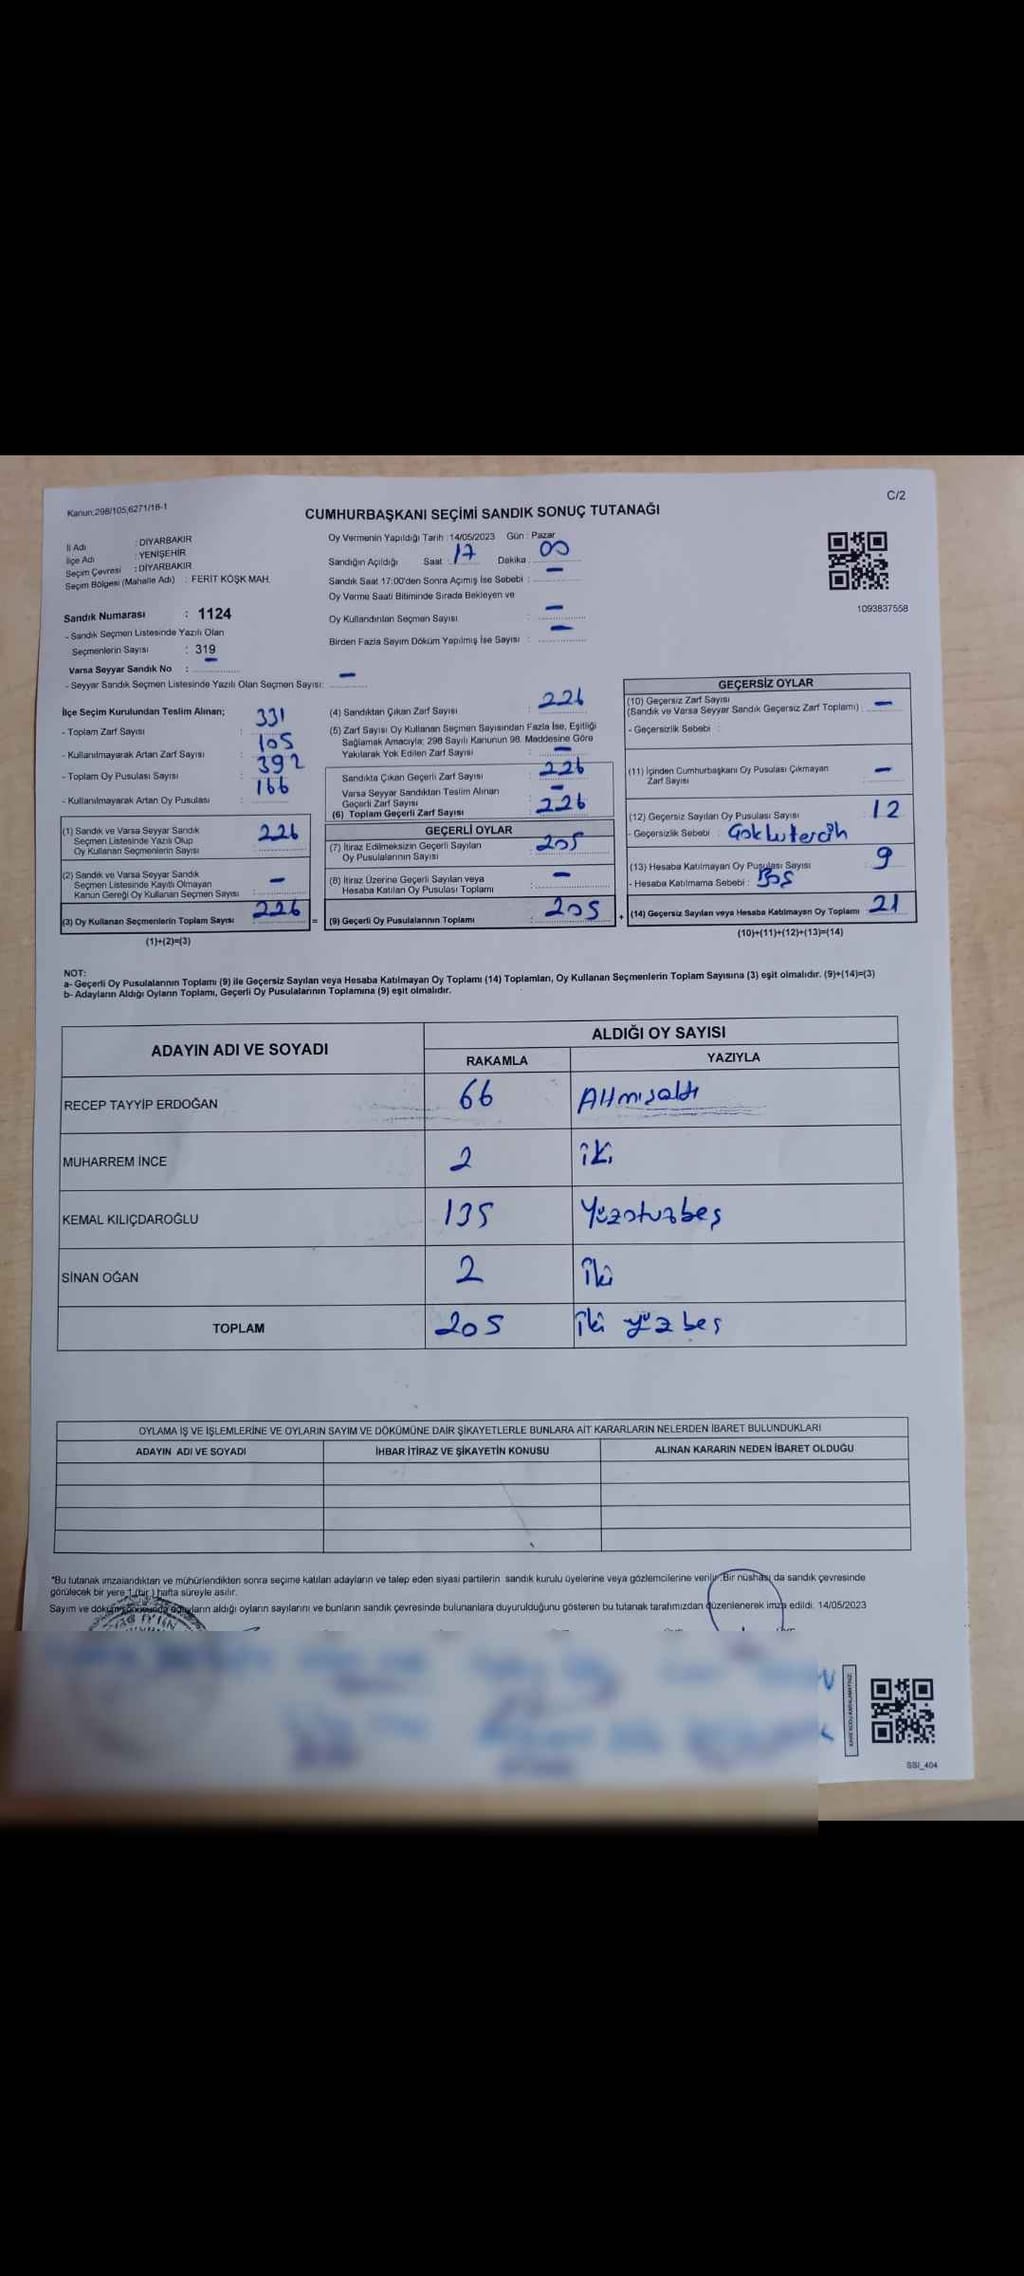 Kanun;298/105;6271/18-1
C/2
CUMHURBAŞKANI SEÇİMİ SANDIK SONUÇ TUTANAĞI
İl Adı : DİYARBAKIR
İlçe Adı : YENİŞEHİR
Seçim Çevresi : DİYARBAKIR
Seçim Bölgesi (Mahalle Adı) : FERİT KÖŞK MAH.
Oy Vermenin Yapıldığı Tarih : 14/05/2023 Gün : Pazar
Sandığın Açıldığı Saat : 17 Dakika : 00
Sandık Saat 17:00'den Sonra Açımış İse Sebebi : -
Oy Verme Saati Bitiminde Sırada Bekleyen ve
Oy Kullandırılan Seçmen Sayısı : -
Birden Fazla Sayım Döküm Yapılmış İse Sayısı : -
1093837558
Sandık Numarası : 1124
- Sandık Seçmen Listesinde Yazılı Olan
Seçmenlerin Sayısı : 319
Varsa Seyyar Sandık No : -
- Seyyar Sandık Seçmen Listesinde Yazılı Olan Seçmen Sayısı: -
İlçe Seçim Kurulundan Teslim Alınan;
- Toplam Zarf Sayısı : 331
- Kullanılmayarak Artan Zarf Sayısı : 105
- Toplam Oy Pusulası Sayısı : 392
- Kullanılmayarak Artan Oy Pusulası : 166
(1) Sandık ve Varsa Seyyar Sandık
Seçmen Listesinde Yazılı Olup
Oy Kullanan Seçmenlerin Sayısı : 226
(2) Sandık ve Varsa Seyyar Sandık
Seçmen Listesinde Kayıtlı Olmayan
Kanun Gereği Oy Kullanan Seçmen Sayısı : -
(3) Oy Kullanan Seçmenlerin Toplam Sayısı : 226
(1)+(2)=(3)
=
(4) Sandıktan Çıkan Zarf Sayısı : 226
(5) Zarf Sayısı Oy Kullanan Seçmen Sayısından Fazla İse, Eşitliği
Sağlamak Amacıyla; 298 Sayılı Kanunun 98. Maddesine Göre
Yakılarak Yok Edilen Zarf Sayısı : -
Sandıkta Çıkan Geçerli Zarf Sayısı : 226
Varsa Seyyar Sandıktan Teslim Alınan
Geçerli Zarf Sayısı : -
(6) Toplam Geçerli Zarf Sayısı : 226
GEÇERLİ OYLAR
(7) İtiraz Edilmeksizin Geçerli Sayılan
Oy Pusulalarının Sayısı : 205
(8) İtiraz Üzerine Geçerli Sayılan veya
Hesaba Katılan Oy Pusulası Toplamı : -
(9) Geçerli Oy Pusulalarının Toplamı : 205
+
GEÇERSİZ OYLAR
(10) Geçersiz Zarf Sayısı
(Sandık ve Varsa Seyyar Sandık Geçersiz Zarf Toplamı) : -
- Geçersizlik Sebebi :
(11) İçinden Cumhurbaşkanı Oy Pusulası Çıkmayan
Zarf Sayısı : -
(12) Geçersiz Sayılan Oy Pusulası Sayısı : 12
- Geçersizlik Sebebi : Çoklu tercih
(13) Hesaba Katılmayan Oy Pusulası Sayısı : 9
- Hesaba Katılmama Sebebi : Boş
(14) Geçersiz Sayılan veya Hesaba Katılmayan Oy Toplamı : 21
(10)+(11)+(12)+(13)=(14)
NOT:
a- Geçerli Oy Pusulalarının Toplamı (9) ile Geçersiz Sayılan veya Hesaba Katılmayan Oy Toplamı (14) Toplamları, Oy Kullanan Seçmenlerin Toplam Sayısına (3) eşit olmalıdır. (9)+(14)=(3)
b- Adayların Aldığı Oyların Toplamı, Geçerli Oy Pusulalarının Toplamına (9) eşit olmalıdır.
ADAYIN ADI VE SOYADI
ALDIĞI OY SAYISI
RAKAMLA YAZIYLA
RECEP TAYYİP ERDOĞAN 66 Altmışaltı
MUHARREM İNCE 2 iki
KEMAL KILIÇDAROĞLU 135 Yüzotuzbeş
SİNAN OĞAN 2 iki
TOPLAM 205 iki yüz beş
OYLAMA İŞ VE İŞLEMLERİNE VE OYLARIN SAYIM VE DÖKÜMÜNE DAİR ŞİKAYETLERLE BUNLARA AİT KARARLARIN NELERDEN İBARET BULUNDUKLARI
ADAYIN ADI VE SOYADI İHBAR İTİRAZ VE ŞİKAYETİN KONUSU ALINAN KARARIN NEDEN İBARET OLDUĞU
*Bu tutanak imzalandıktan ve mühürlendikten sonra seçime katılan adayların ve talep eden siyasi partilerin sandık kurulu üyelerine veya gözlemcilerine verilir. Bir nüshası da sandık çevresinde
görülecek bir yere 1 (bir ) hafta süreyle asılır.
Sayım ve döküm sonucunda adayların aldığı oyların sayılarını ve bunların sandık çevresinde bulunanlara duyurulduğunu gösteren bu tutanak tarafımızdan düzenlenerek imza edildi. 14/05/2023
SSI_404